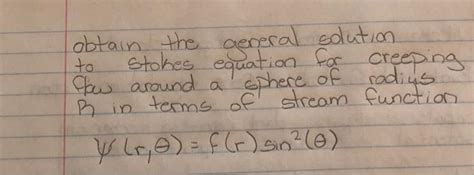 obtain the general solution
to stokes equation for creeping
flow around a sphere of radius
R in terms of stream function
ψ(r,θ) = f(r) sin²(θ)